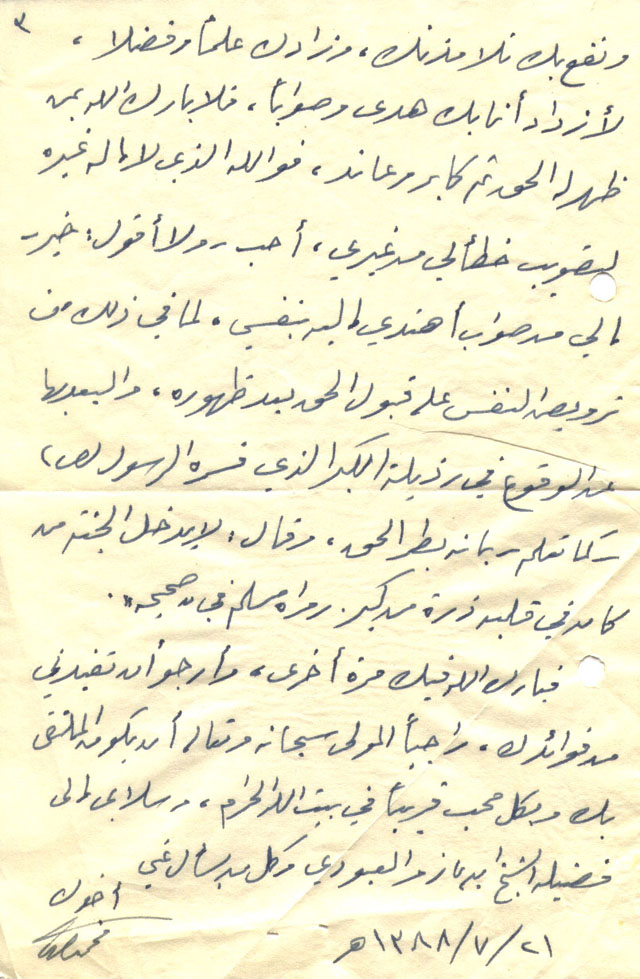 ٣
ونفع بك تلامذتك، وزادك علماً وفضلا،
لأزداد أنا بك هدى وصواباً، فلا بارك الله بمن
ظهر له الحق ثم كابر وعاند، فوالله الذي لا إله غيره
لتصويب خطألي من غيري، أحب - ولا أقول: خير -
إلي من صواب أهتدي إليه بنفسي، لما في ذلك من
ترويض النفس على قبول الحق بعد ظهوره، والبعد بها
عن الوقوع في رذيلة الكبر الذي فسره الرسول (ص)
- كما تعلم - بأنه بطر الحق، وقال: لا يدخل الجنة من
كان في قلبه ذرة من كبر. رواه مسلم في "صحيحه".
فبارك الله فيك مرة أخرى، وأرجو أن تفيدني
من فوائدك، راجياً المولى سبحانه وتعالى أن يكون الملتقى
بك وبكل محب قريباً في بيت الله الحرام، وسلامي إلى
فضيلة الشيخ ابن باز والعبودي وكل من يسأل عني
أخوك
محمد ناصر
٢١/٧/١٣٨٨هـ